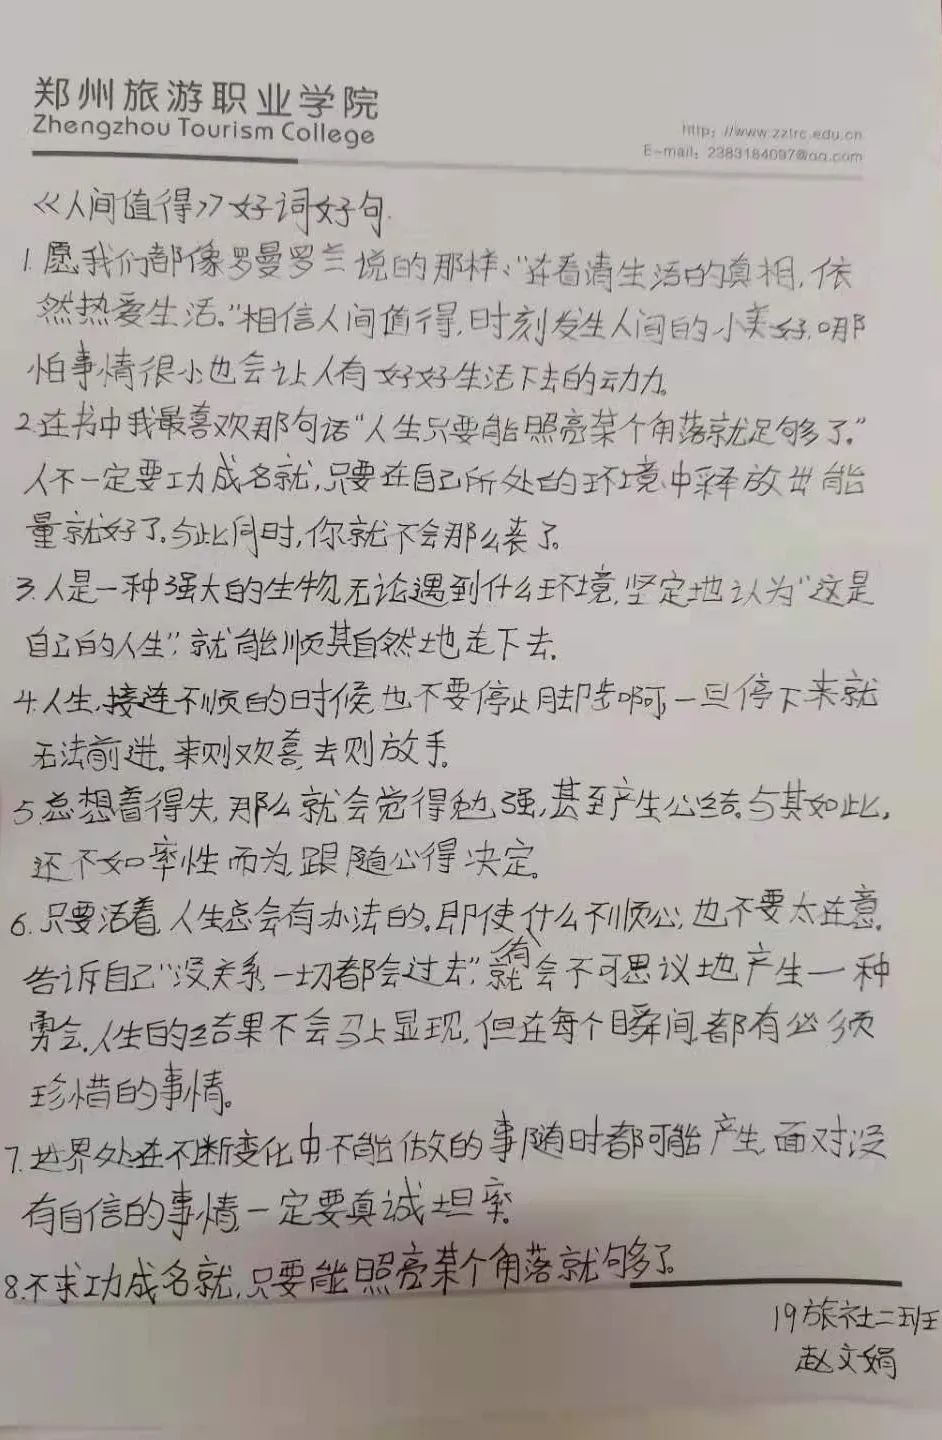 郑州旅游职业学院
Zhengzhou Tourism College
http://www.zztrc.edu.cn
E-mail: 2383184097@qq.com
《人间值得》好词好句.
1.愿我们都像罗曼罗兰说的那样:"在看清生活的真相,依
然热爱生活。"相信人间值得,时刻发生人间的小美好,哪
怕事情很小也会让人有好好生活下去的动力。
2.在书中我最喜欢那句话"人生只要能照亮某个角落就足够了。"
人不一定要功成名就,只要在自己所处的环境中释放出能
量就好了。与此同时,你就不会那么丧了。
3.人是一种强大的生物,无论遇到什么环境,坚定地认为"这是
自己的人生",就能顺其自然地走下去。
4.人生,接连不顺的时候,也不要停止脚步啊,一旦停下来就
无法前进。来则欢喜,去则放手。
5.总想着得失,那么就会觉得勉强,甚至产生心结。与其如此,
还不如率性而为,跟随心得决定。
6.只要活着,人生总会有办法的。即使有什么不顺心,也不要太在意。
告诉自己"没关系,一切都会过去",就会不可思议地产生一种
勇气。人生的结果不会马上显现,但在每个瞬间,都有必须
珍惜的事情。
7.世界处在不断变化中不能做的事随时都可能产生,面对没
有自信的事情,一定要真诚坦率。
8.不求功成名就,只要能照亮某个角落就够了。
19旅社二班
赵文娟